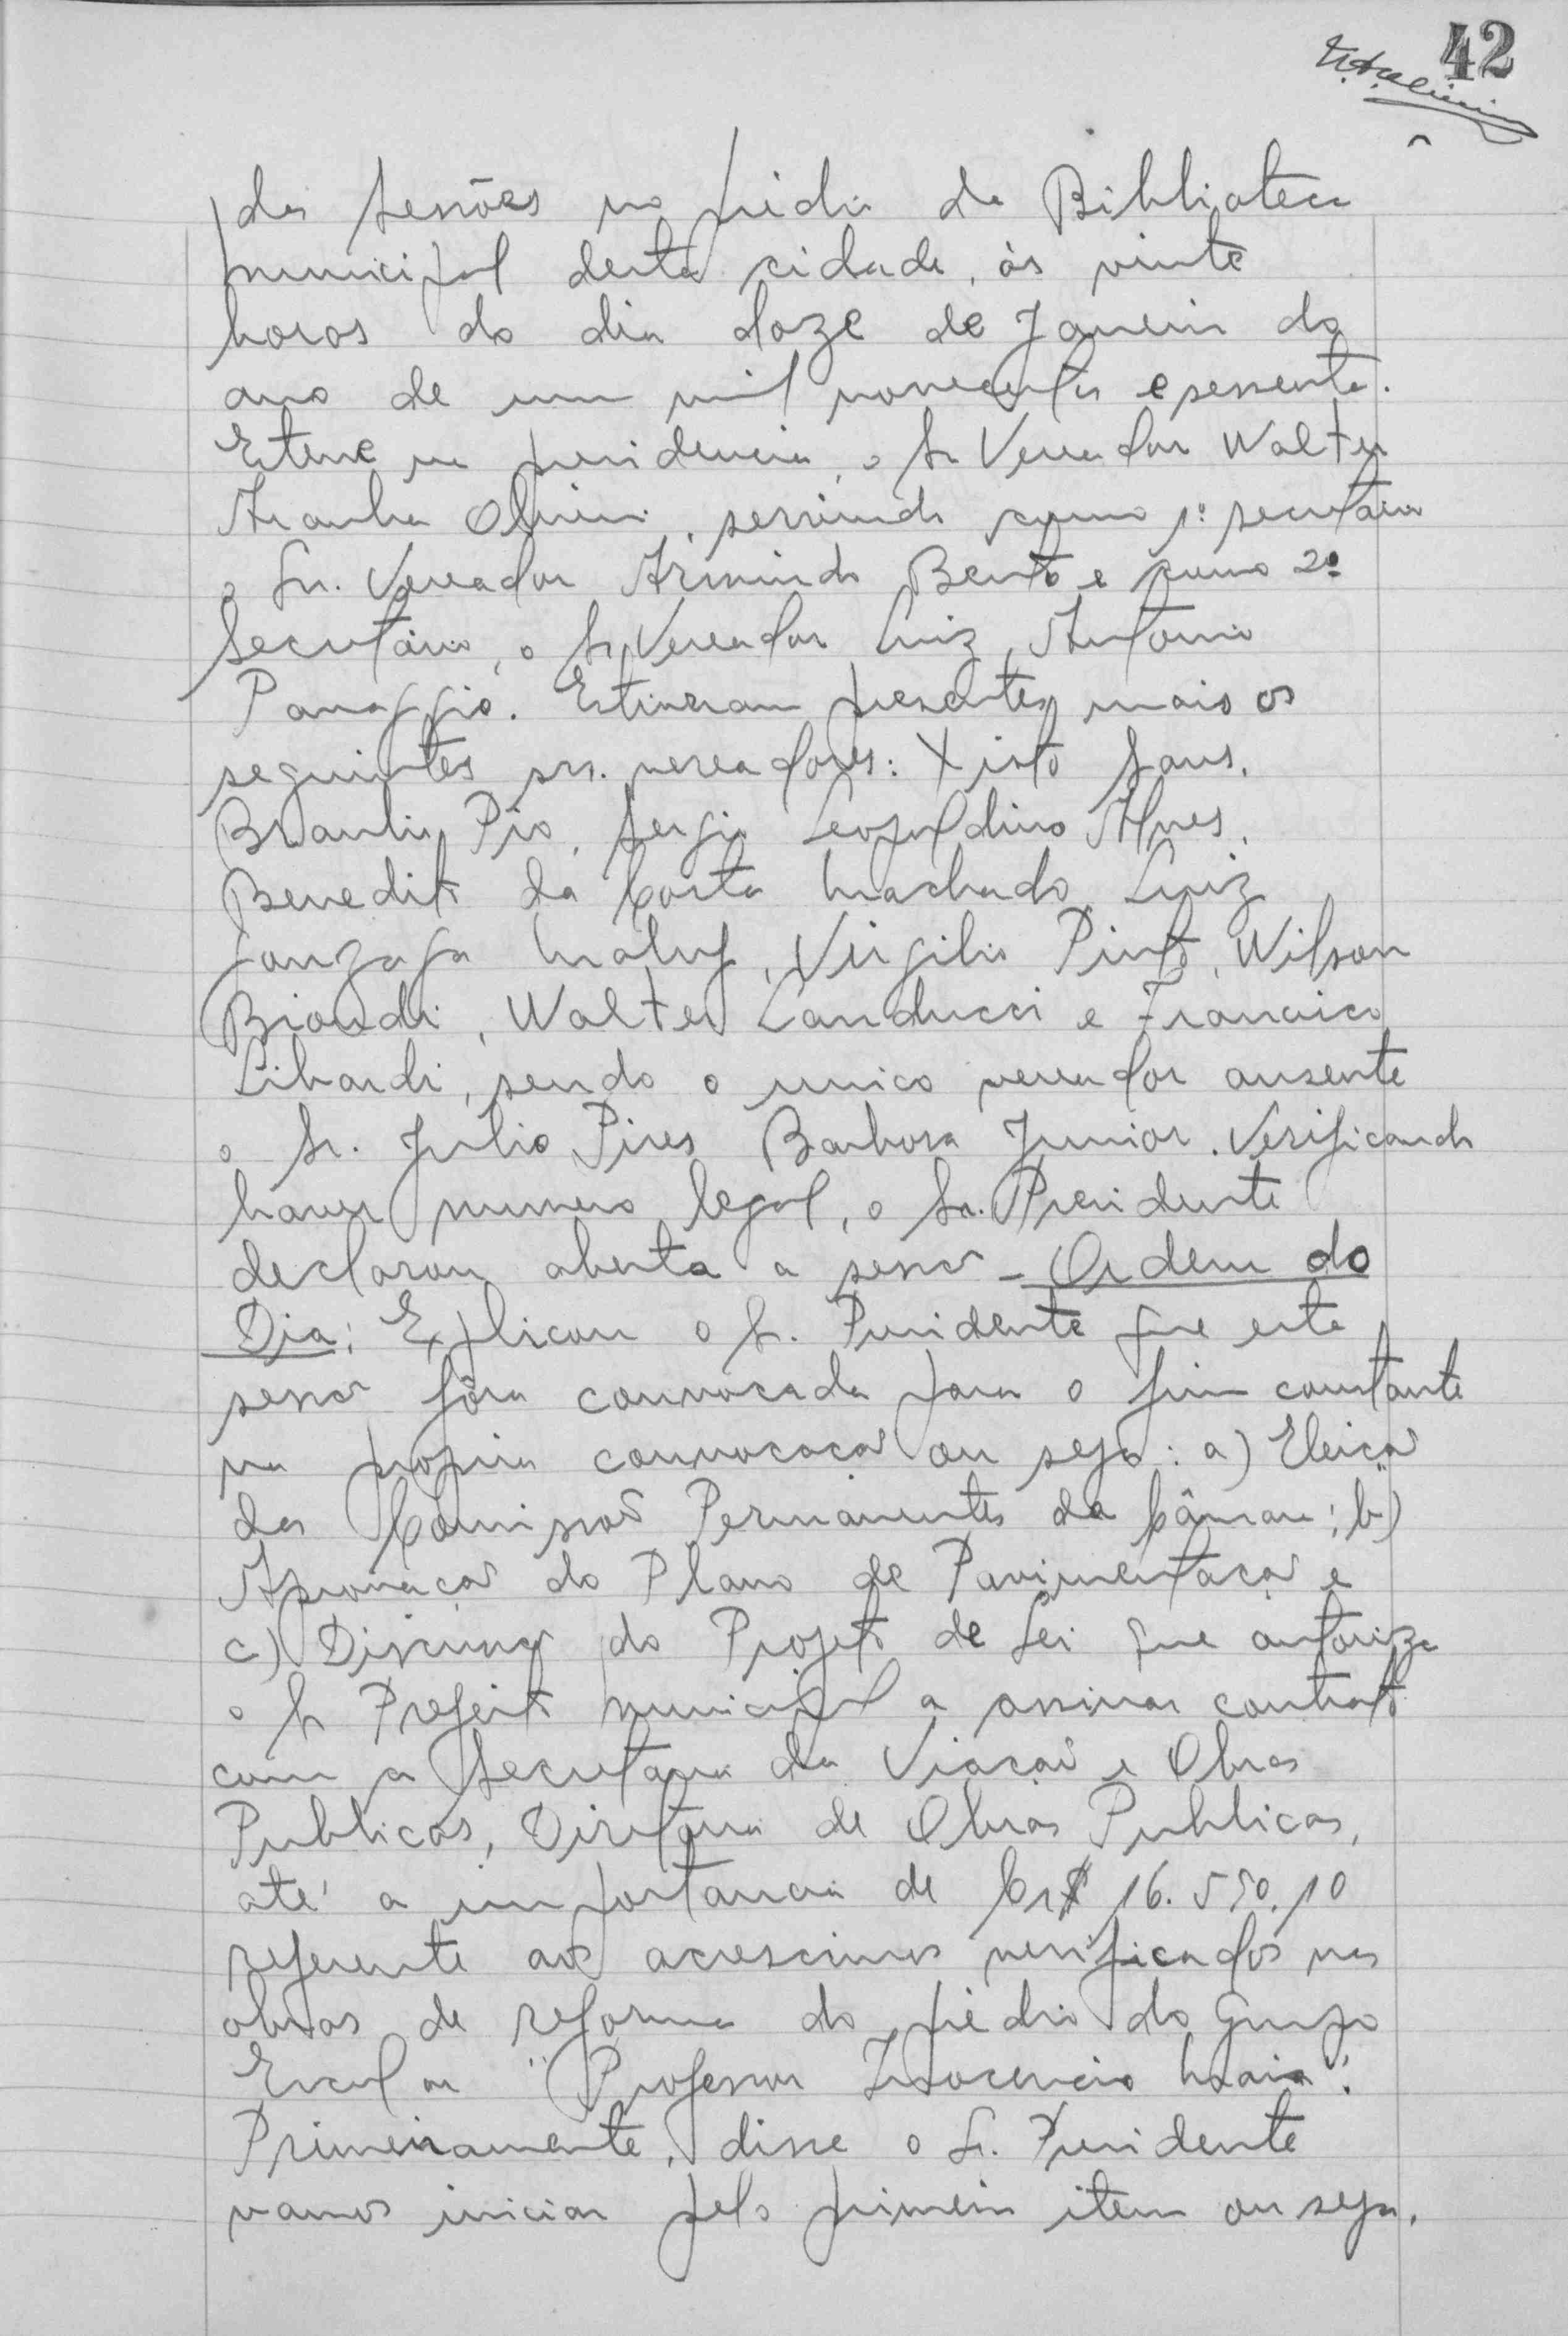 42
das sessões no prédio da Biblioteca
municipal desta cidade, às vinte
horas do dia doze de Janeiro do
ano de um mil novecentos e sessenta.
Esteve na presidencia, o Sr Vereador Walter
Aranha Olivieri, servindo como 1º secretário
o Sr. Vereador Armindo Bento e como 2º
Secretário, o Sr Vereador Luiz Antonio
Panaggio. Estiveram presentes mais os
seguintes srs. vereadores: Xisto Sans,
Braulio Pio, Sergio Leopoldino Alves,
Benedito da Costa Machado, Luiz
Gonzaga Maluf, Virgilio Pinto, Wilson
Biondi, Walter Landucci e Francisco
Libardi, sendo o unico vereador ausente
o Sr. Julio Pires Barbosa Junior. Verificando
haver numero legal, o Sr. Presidente
declarou aberta a sessão - Ordem do
Dia: Explicou o Sr. Presidente que esta
sessão fôra convocada para o fim constante
na propria convocação ou seja: a) Eleição
das Comissões Permanentes da Câmara; b)
Aprovação do Plano de Pavimentação e
c) Discussão do Projeto de Lei que autoriza
o Sr Prefeito municipal a assinar contrato
com a Secretaria da Viação e Obras
Publicas, Diretoria de Obras Publicas,
até a importancia de Cr$ 16.550,10
referente aos acrescimos verificados nas
obras de reforma do prédio do Grupo
Escolar "Professor Inocencio Maia".
Primeiramente, disse o Sr. Presidente
vamos iniciar pelo primeiro item ou seja,